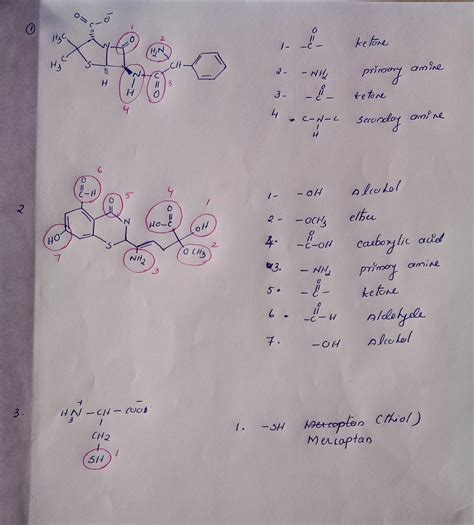 ①
O
C
O⁻
H₃C
H₃C
N
O
1
2
H₂N
CH
S
H
N
H
C
O
3
4
1- -C- ketone
O
2- -NH₂ primary amine
3- -C- ketone
O
4 - C-N-C secondary amine
H
2
6
O
C-H
O
5
N
HO
7
S
4
O
HO-C
1
OH
OCH₃
2
NH₂
3
1- -OH Alcohol
2- -OCH₃ ether
4- -C-OH carboxylic acid
O
3. -NH₂ primary amine
5. -C- ketone
O
6. -C-H Aldehyde
O
7. -OH Alcohol
3.
H₃N⁺-CH-COO⁻
CH₂
SH 1
1. -SH Mercaptan (thiol)
Mercaptan